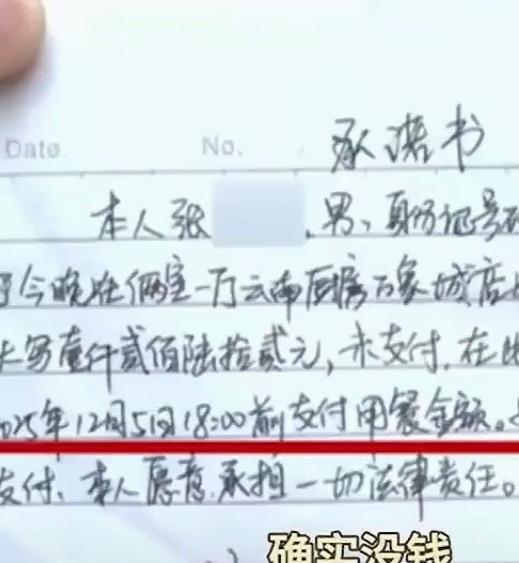 Date No. 承诺书
本人张 ,男、身份证号码
于今晚在俩室一厅云南厨房万象城店
大写壹仟贰佰陆拾贰元,未支付.在此
025年12月5日18:00前支付用餐金额。
支付、本人愿意承担一切法律责任。
确实没钱